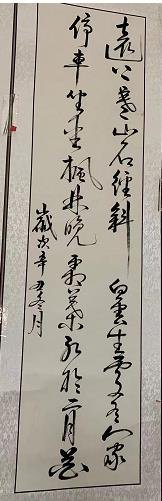 遠上寒山石徑斜 白雲生處有人家
停車坐愛楓林晚 霜葉紅於二月花
歲次辛丑冬月